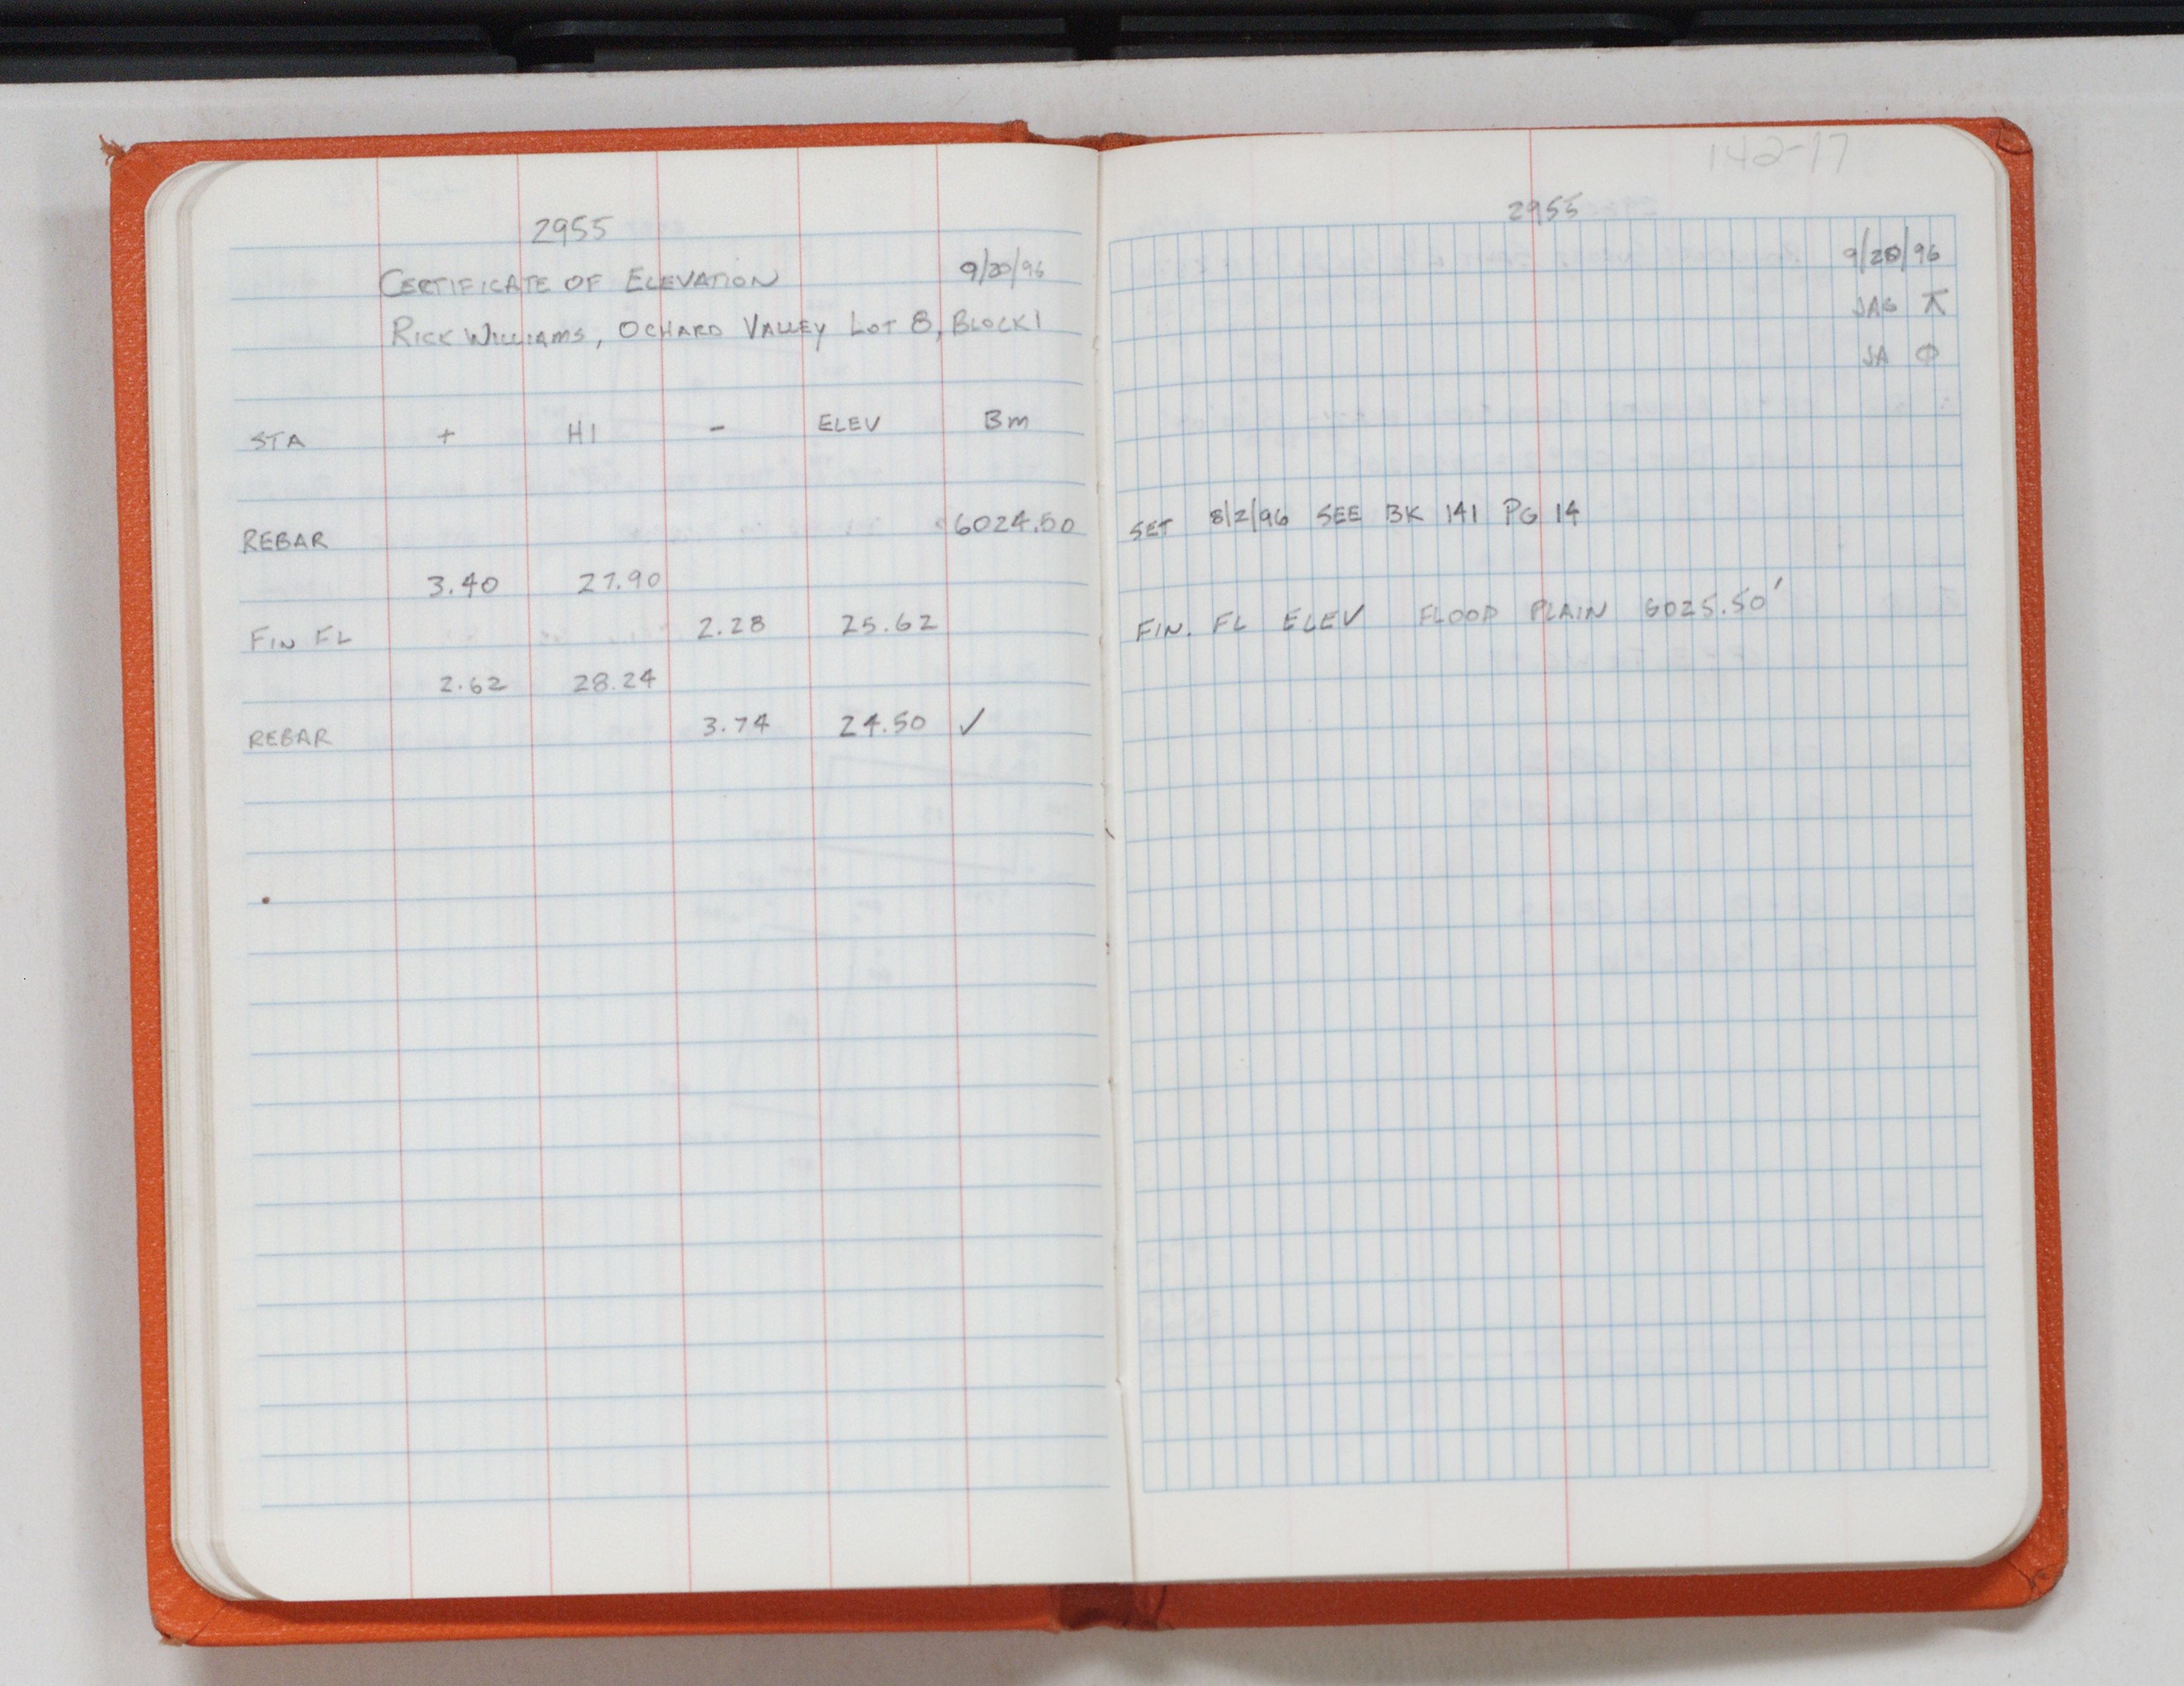 2955
CERTIFICATE OF ELEVATION 9/20/96
RICK WILLIAMS, OCHARD VALLEY LOT 8, BLOCK 1
STA + HI - ELEV BM
REBAR 6024.50
3.40 27.90
FIN FL 2.28 25.62
2.62 28.24
REBAR 3.74 24.50 ✓
142-17
2955
9/20/96
JAG ⊼
JA Φ
SET 8/2/96 SEE BK 141 PG 14
FIN. FL ELEV FLOOD PLAIN 6025.50'